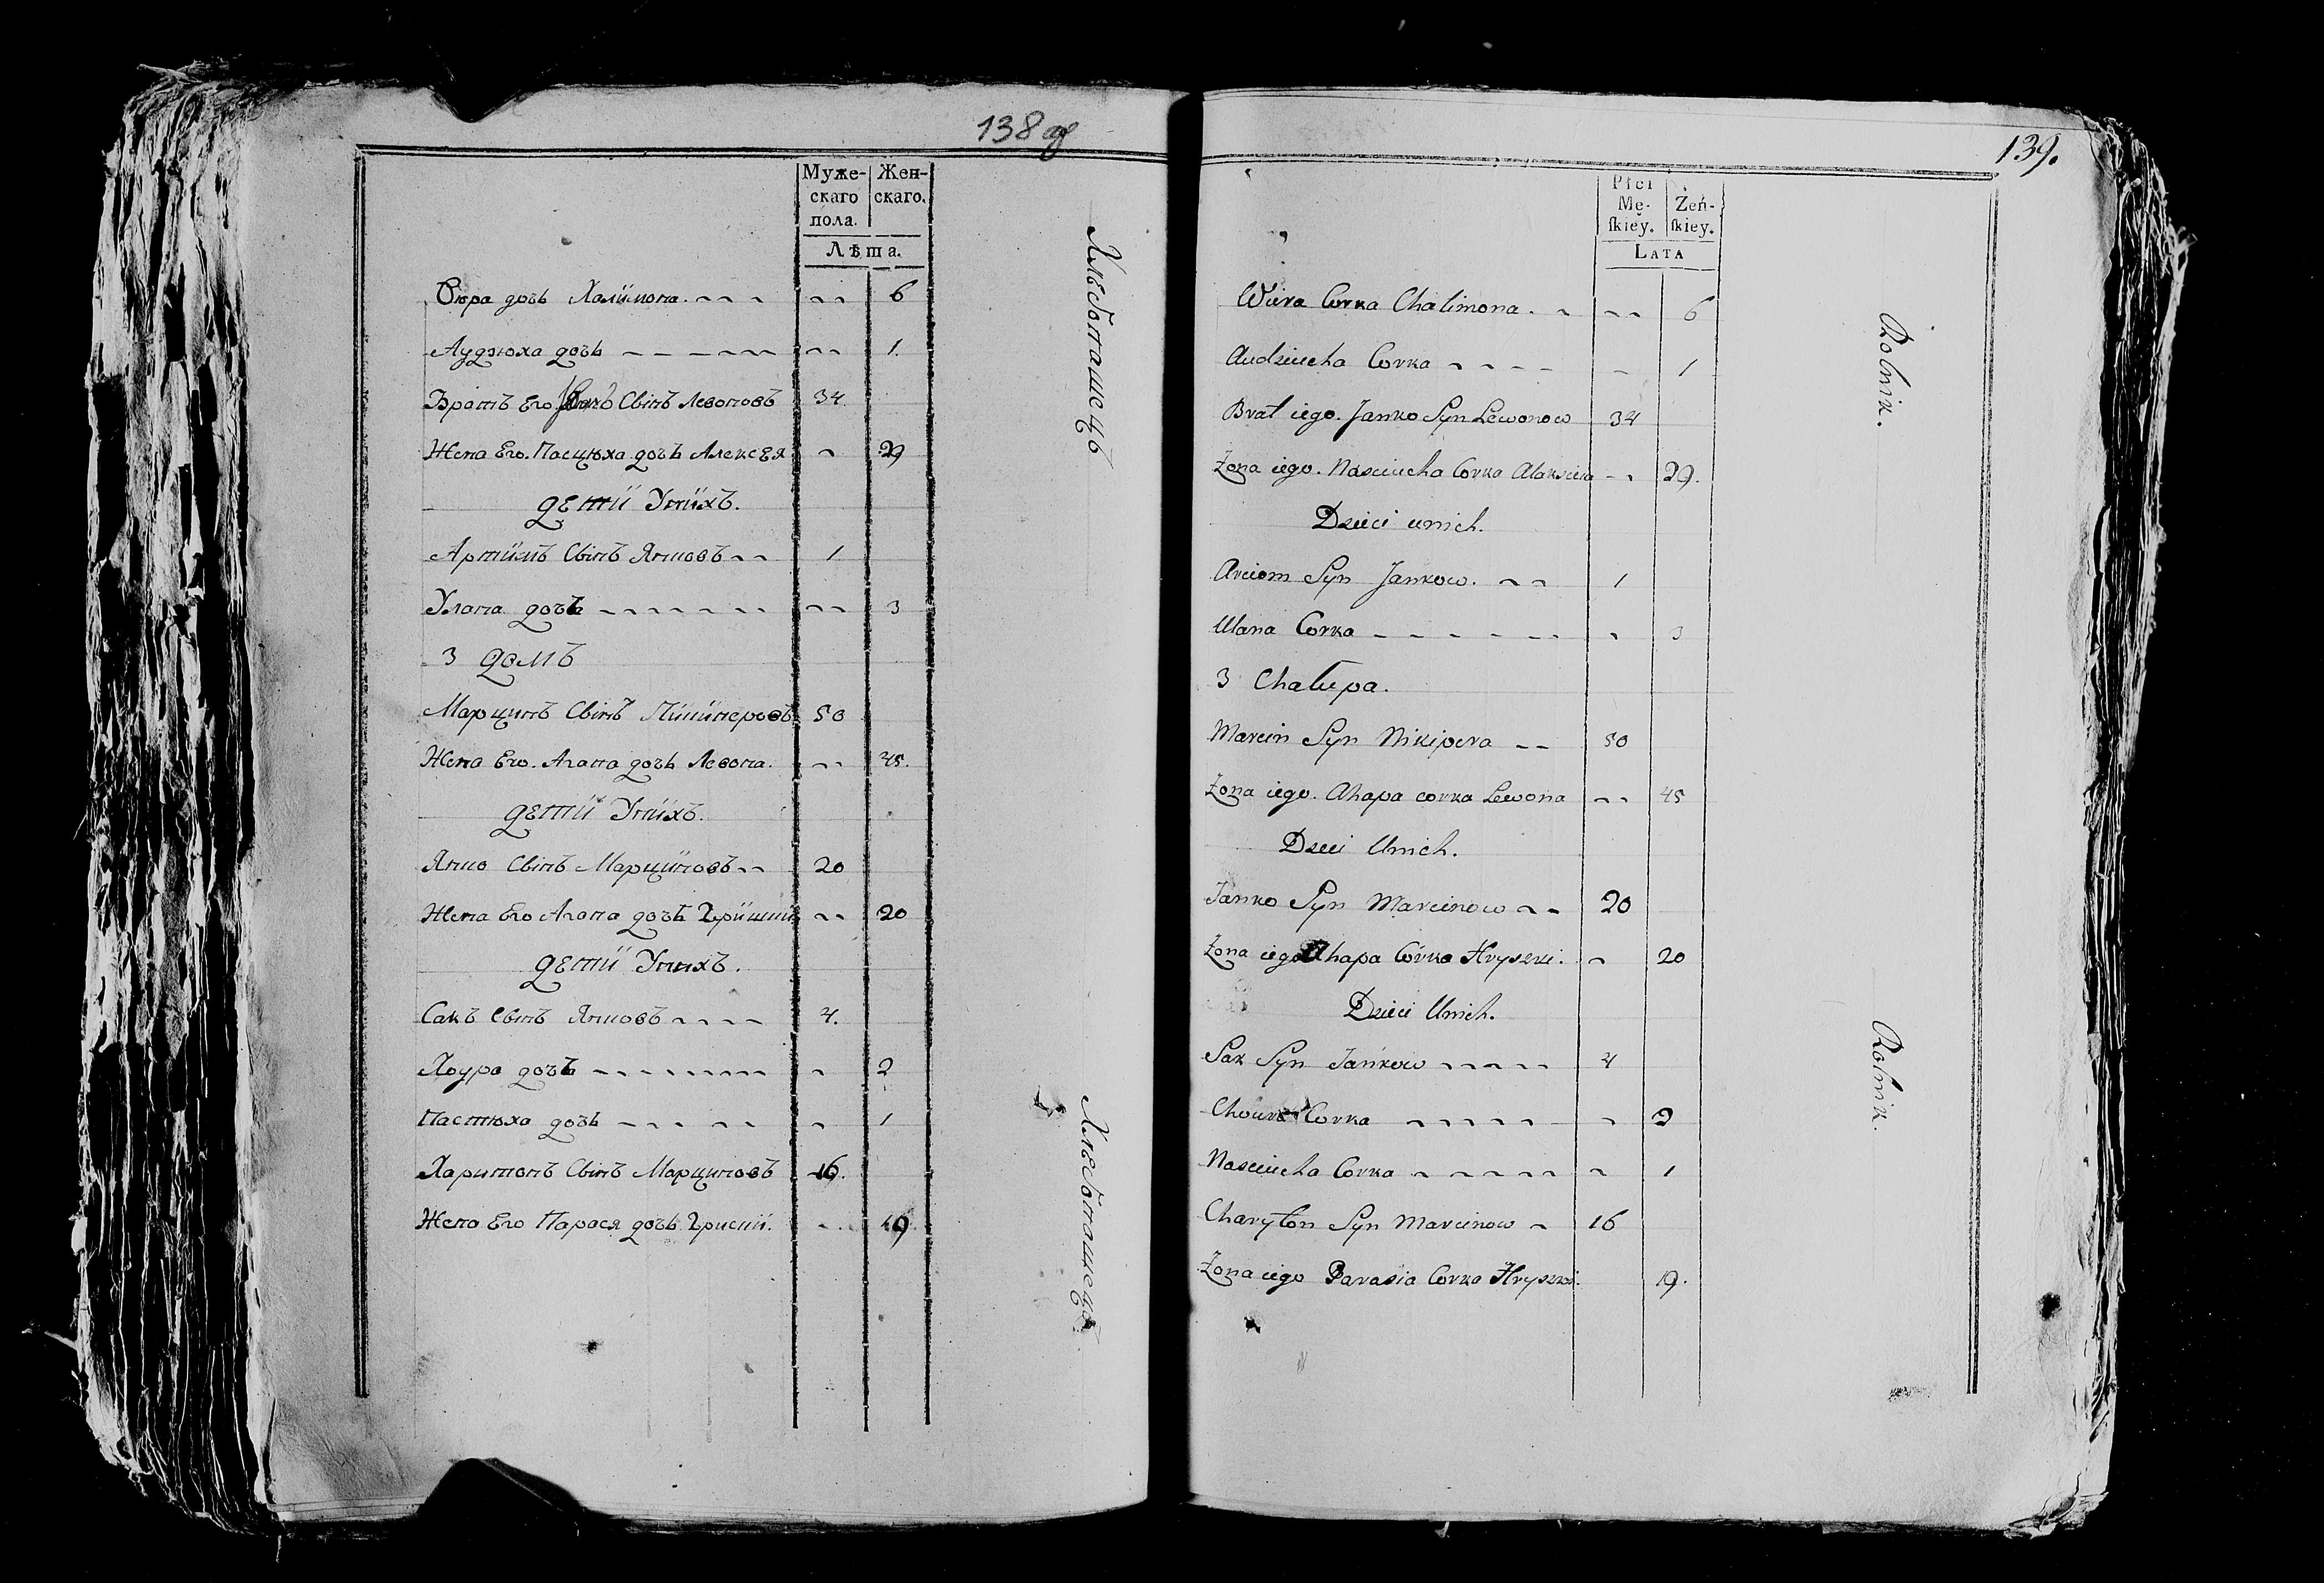 138 об
Муже-
скаго
пола.
Жен-
скаго.
Лѣта.
Вюра дочь Халимона. 6
Аудзюха дочь 1.
Братъ Его Янкъ Сынъ Левоновъ 34
Жена Его. Насцюха дочь Алексея 29
дети Унихъ.
Артимъ Сынъ Янковъ 1
Улана дочь 3
3 домъ
Марцинъ Сынъ Никиперовъ 50
Жена Его. Агапа дочь Левона. 45.
дети Унихъ.
Янко Сынъ Марциновъ 20
Жена Его Агапа дочь Гришки 20
дети Унихъ.
Сакъ Сынъ Янковъ 4.
Хоура дочь 2
Настюха дочь 1
Харитонъ Сынъ Марциновъ 16.
Жена Его Парася дочь Гриски. 19
Хлѣбопашецъ
Хлѣбопашецъ.
139.
Płci
Mę-
ſkiey.
Żeń-
ſkiey.
LATA
Wiura Corka Chalimona. 6
Audziucha Corka 1
Brat iego. Janko Syn Lewonow 34
Żona iego. Nasciucha Corka Alaksieia 29.
Dzieci unich.
Arciom Syn Jankow. 1
Ulana Corka 3
3 Chałupa.
Marcin Syn Nikipera 50
Żona iego. Ahapa corka Lewona 45
Dzieci Unich.
Janko Syn Marcinow 20
Żona iego Ahapa Córka Hryszki. 20
Dzieci Unich.
Sak Syn Jankow 4
Choura Corka 2
Nasciucha Corka 1
Charyton Syn Marcinow 16
Żona iego Parasia Corka Hryszki. 19.
Rolnik.
Rolnik.